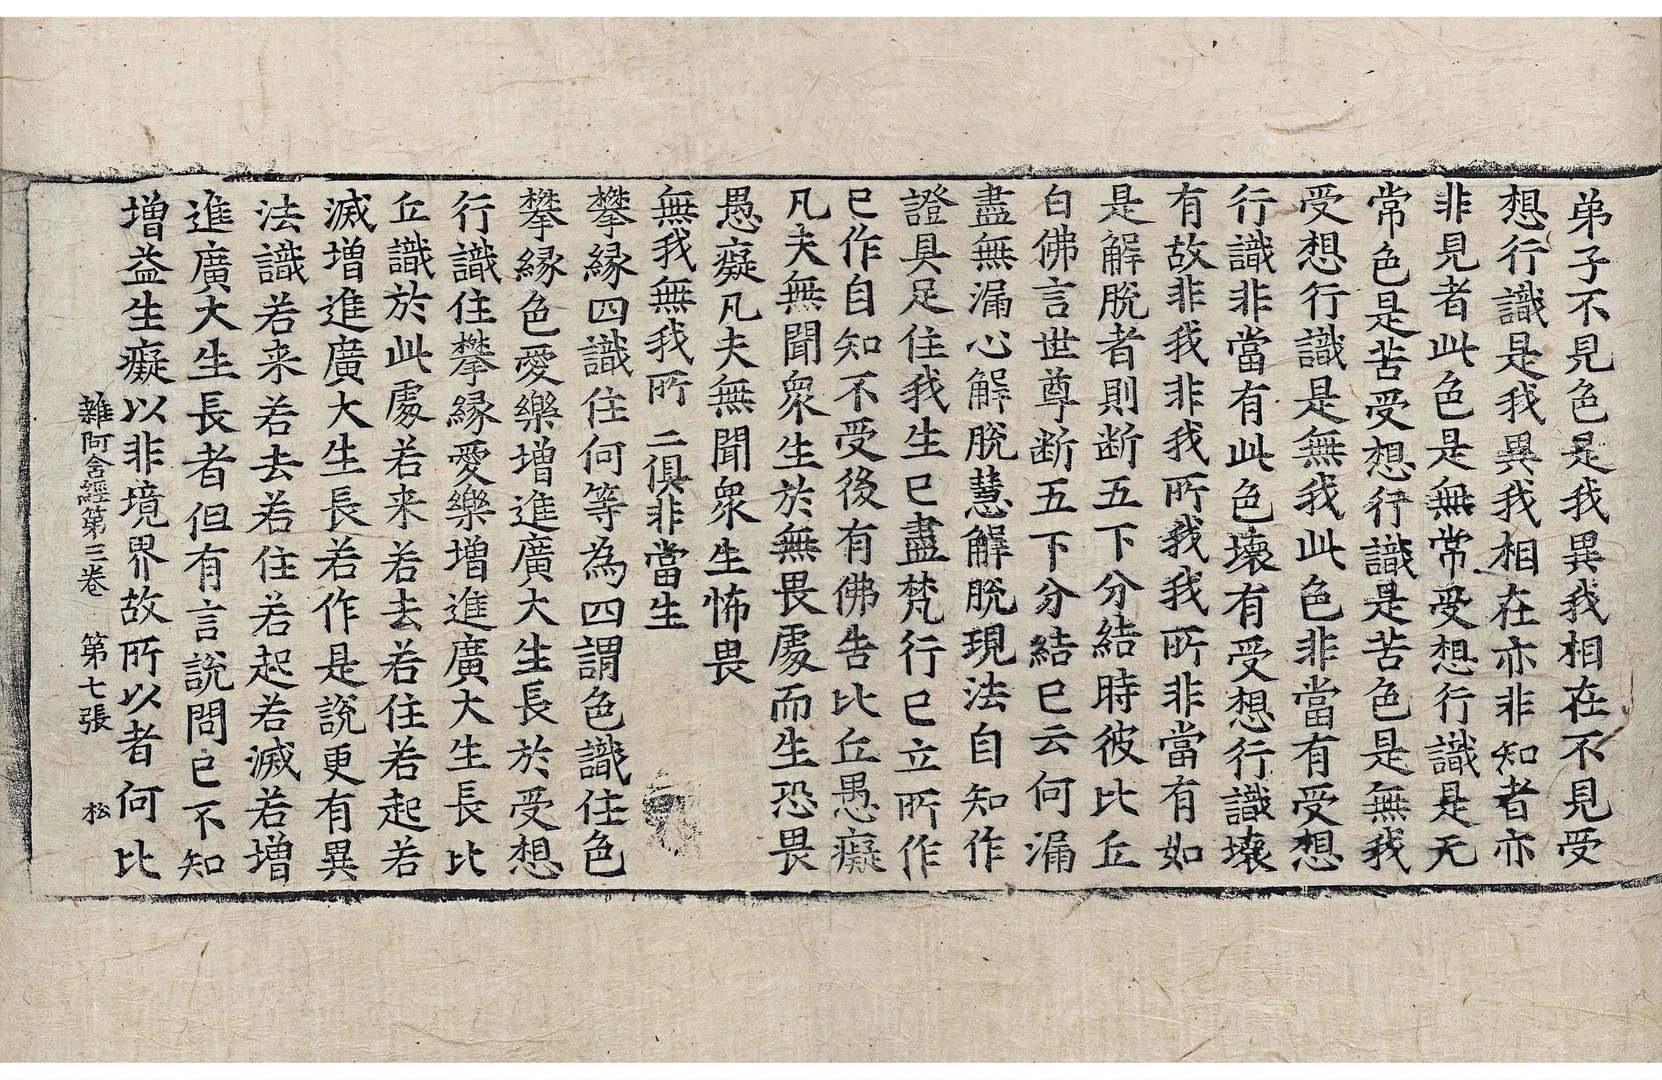 弟子不見色是我異我相在不見受
想行識是我異我相在亦非知者亦
非見者此色是無常受想行識是无
常色是苦受想行識是苦色是無我
受想行識是無我此色非當有受想
行識非當有此色壞有受想行識壞
有故非我非我所我我所非當有如
是解脫者則断五下分結時彼比丘
白佛言世尊断五下分結已云何漏
盡無漏心解脫慧解脫現法自知作
證具足住我生已盡梵行已立所作
已作自知不受後有佛告比丘愚癡
凡夫無聞衆生於無畏處而生恐畏
愚癡凡夫無聞衆生怖畏
無我無我所 二俱非當生
攀緣四識住何等為四謂色識住色
攀緣色愛樂增進廣大生長於受想
行識住攀緣愛樂增進廣大生長比
丘識於此處若来若去若住若起若
滅增進廣大生長若作是說更有異
法識若来若去若住若起若滅若增
進廣大生長者但有言說問已不知
增益生癡以非境界故所以者何比
雜阿含經第三卷 第七張 松